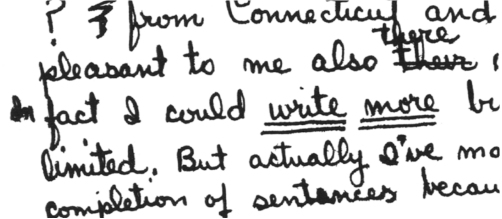 ? from Connecticut and
there
pleasant to me also their
In fact I could write more
limited. But actually I've
completion of sentences